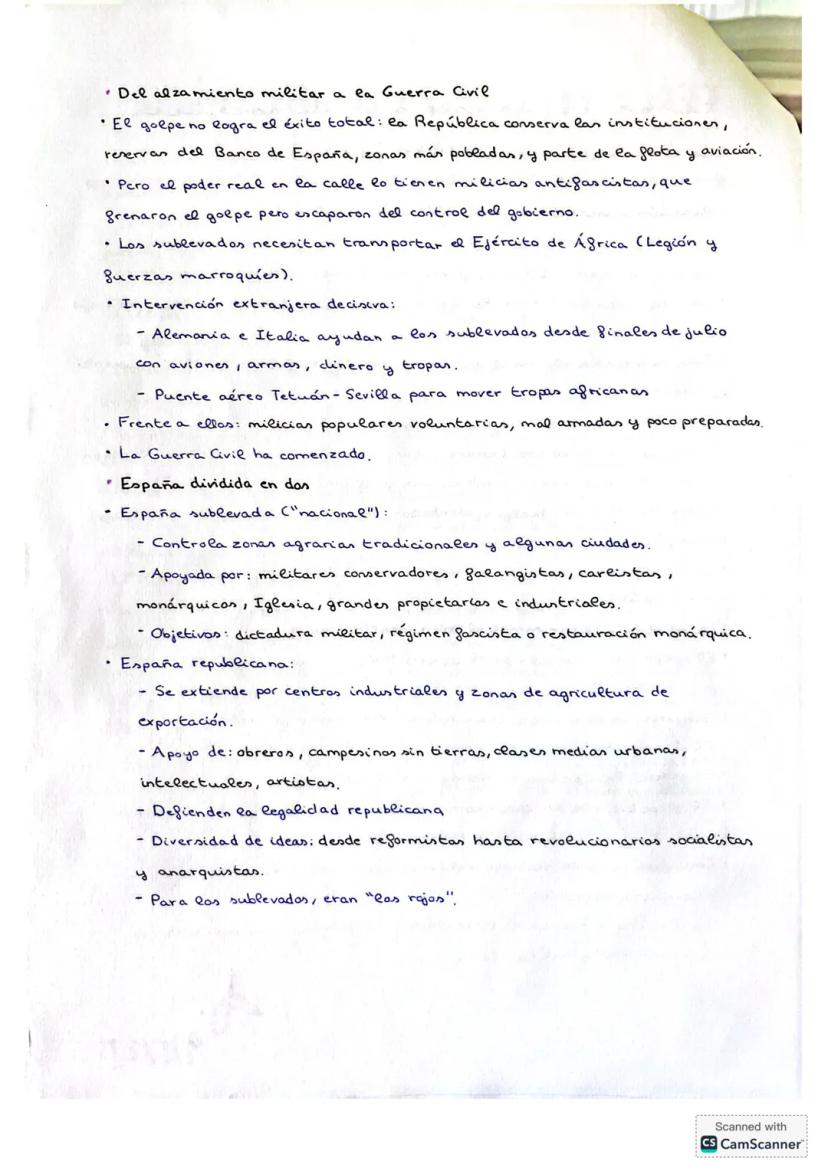 • Del alzamiento militar a la Guerra Civil
• El golpe no logra el éxito total: la República conserva las instituciones,
reservas del Banco de España, zonas más pobladas, y parte de la flota y aviación.
• Pero el poder real en la calle lo tienen milicias antifascistas, que
frenaron el golpe pero escaparon del control del gobierno.
• Los sublevados necesitan transportar el Ejército de África (Legión y
fuerzas marroquíes).
• Intervención extranjera decisiva:
- Alemania e Italia ayudan a los sublevados desde finales de julio
con aviones, armas, dinero y tropas.
- Puente aéreo Tetuán - Sevilla para mover tropas africanas
• Frente a ellos: milicias populares voluntarias, mal armadas y poco preparadas.
• La Guerra Civil ha comenzado.
• España dividida en dos
• España sublevada ("nacional"):
- Controla zonas agrarias tradicionales y algunas ciudades.
- Apoyada por: militares conservadores, falangistas, carlistas,
monárquicos, Iglesia, grandes propietarios e industriales.
- Objetivos: dictadura militar, régimen fascista o restauración monárquica.
• España republicana:
- Se extiende por centros industriales y zonas de agricultura de
exportación.
- Apoyo de: obreros, campesinos sin tierras, clases medias urbanas,
intelectuales, artistas.
- Defienden la legalidad republicana
- Diversidad de ideas: desde reformistas hasta revolucionarios socialistas
y anarquistas.
- Para los sublevados, eran "los rojos".
Scanned with
CS CamScanner